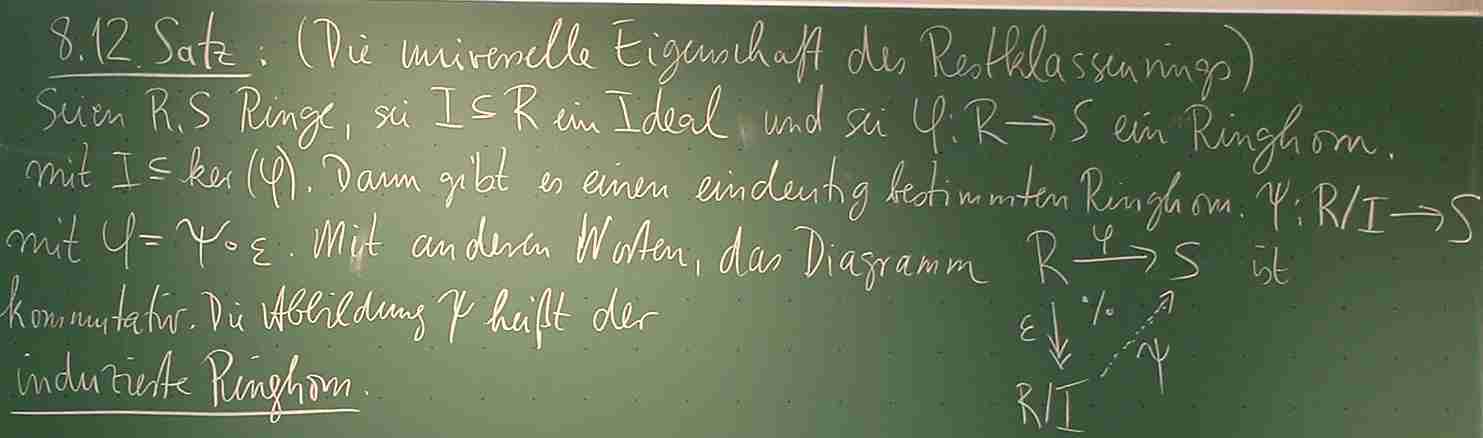 8.12. Satz: (Die universelle Eigenschaft des Restklassenrings)
Seien R, S Ringe, sei I ⊆ R ein Ideal und sei φ: R → S ein Ringhom.
mit I ⊆ ker(φ). Dann gibt es einen eindeutig bestimmten Ringhom. ψ: R/I → S
mit φ = ψ∘ε. Mit anderen Worten, das Diagramm R →φ S ist
kommutativ. Die Abbildung ψ heißt der
ε ⁒ ψ
induzierte Ringhom.
R/I